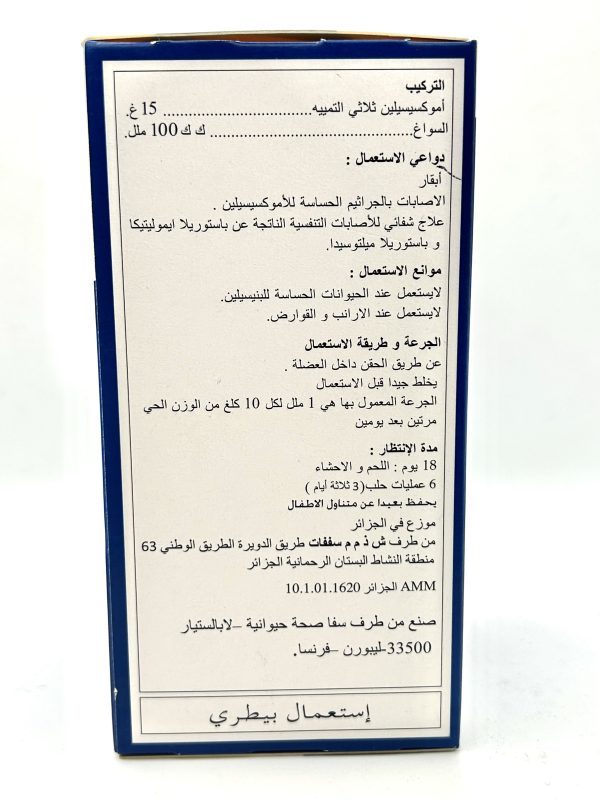 التركيب
أموكسيسيلين ثلاثي التمييه.................................... 15 غ.
السواغ.................................................. ك ك 100 ملل.
دواعي الاستعمال :
أبقار
الاصابات بالجراثيم الحساسة للأموكسيسيلين .
علاج شفائي للأصابات التنفسية الناتجة عن باستوريلا ايموليتيكا
و باستوريلا ميلتوسيدا.
موانع الاستعمال :
لايستعمل عند الحيوانات الحساسة للبنيسيلين.
لايستعمل عند الارانب و القوارض.
الجرعة و طريقة الاستعمال
عن طريق الحقن داخل العضلة .
يخلط جيدا قبل الاستعمال
الجرعة المعمول بها هي 1 ملل لكل 10 كلغ من الوزن الحي
مرتين بعد يومين
مدة الإنتظار :
18 يوم : اللحم و الاحشاء
6 عمليات حلب(3 ثلاثة أيام )
يحفظ بعيدا عن متناول الاطفال
موزع في الجزائر
من طرف ش ذ م م سفقات طريق الدويرة الطريق الوطني 63
منطقة النشاط البستان الرحمانية الجزائر
AMM الجزائر 10.1.01.1620
صنع من طرف سفا صحة حيوانية –لابالستيار
33500-ليبورن –فرنسا.
إستعمال بيطري